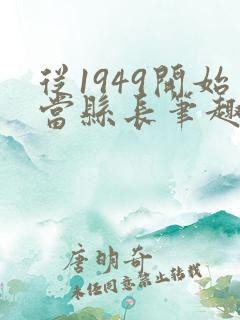 從1949開始
當縣長筆趣
唐明奇
未任同意禁止转载